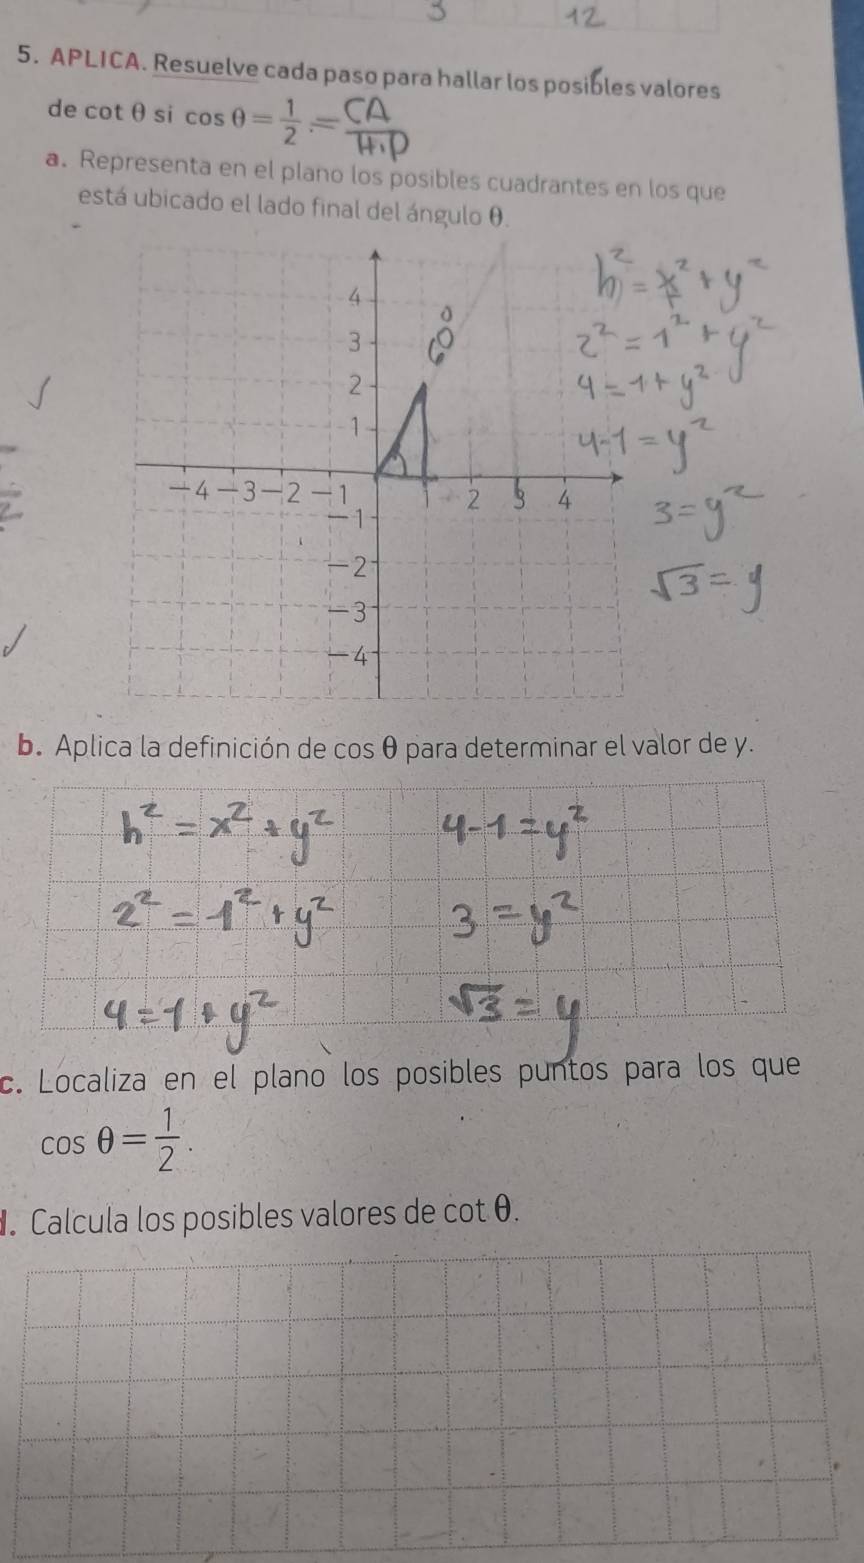 3 12
5. APLICA. Resuelve cada paso para hallar los posibles valores
de cot θ si cos θ = 1/2 . = CA/HiP
a. Representa en el plano los posibles cuadrantes en los que
está ubicado el lado final del ángulo θ.
4
3
2
1
-4 -3 -2 -1 1 2 3 4
-1
-2
-3
-4
60°
h² = x² + y²
2² = 1² + y²
4 = 1 + y²
4-1 = y²
3 = y²
√3 = y
b. Aplica la definición de cos θ para determinar el valor de y.
h² = x² + y² 4-1 = y²
2² = 1² + y² 3 = y²
4 = 1 + y² √3 = y
c. Localiza en el plano los posibles puntos para los que
cos θ = 1/2 .
d. Calcula los posibles valores de cot θ.